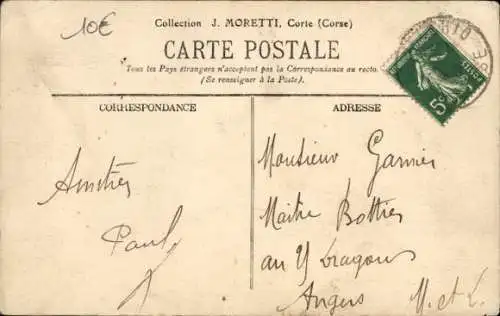 10€
Collection J. MORETTI, Corte (Corse)
CARTE POSTALE
Tous les Pays étrangers n'acceptent pas la Correspondance au recto.
(Se renseigner à la Poste).
CORRESPONDANCE
ADRESSE
5c
Amitiés
Paul
Monsieur Garnier
Maitre Bottier
au Dragons
Angers M. et L.